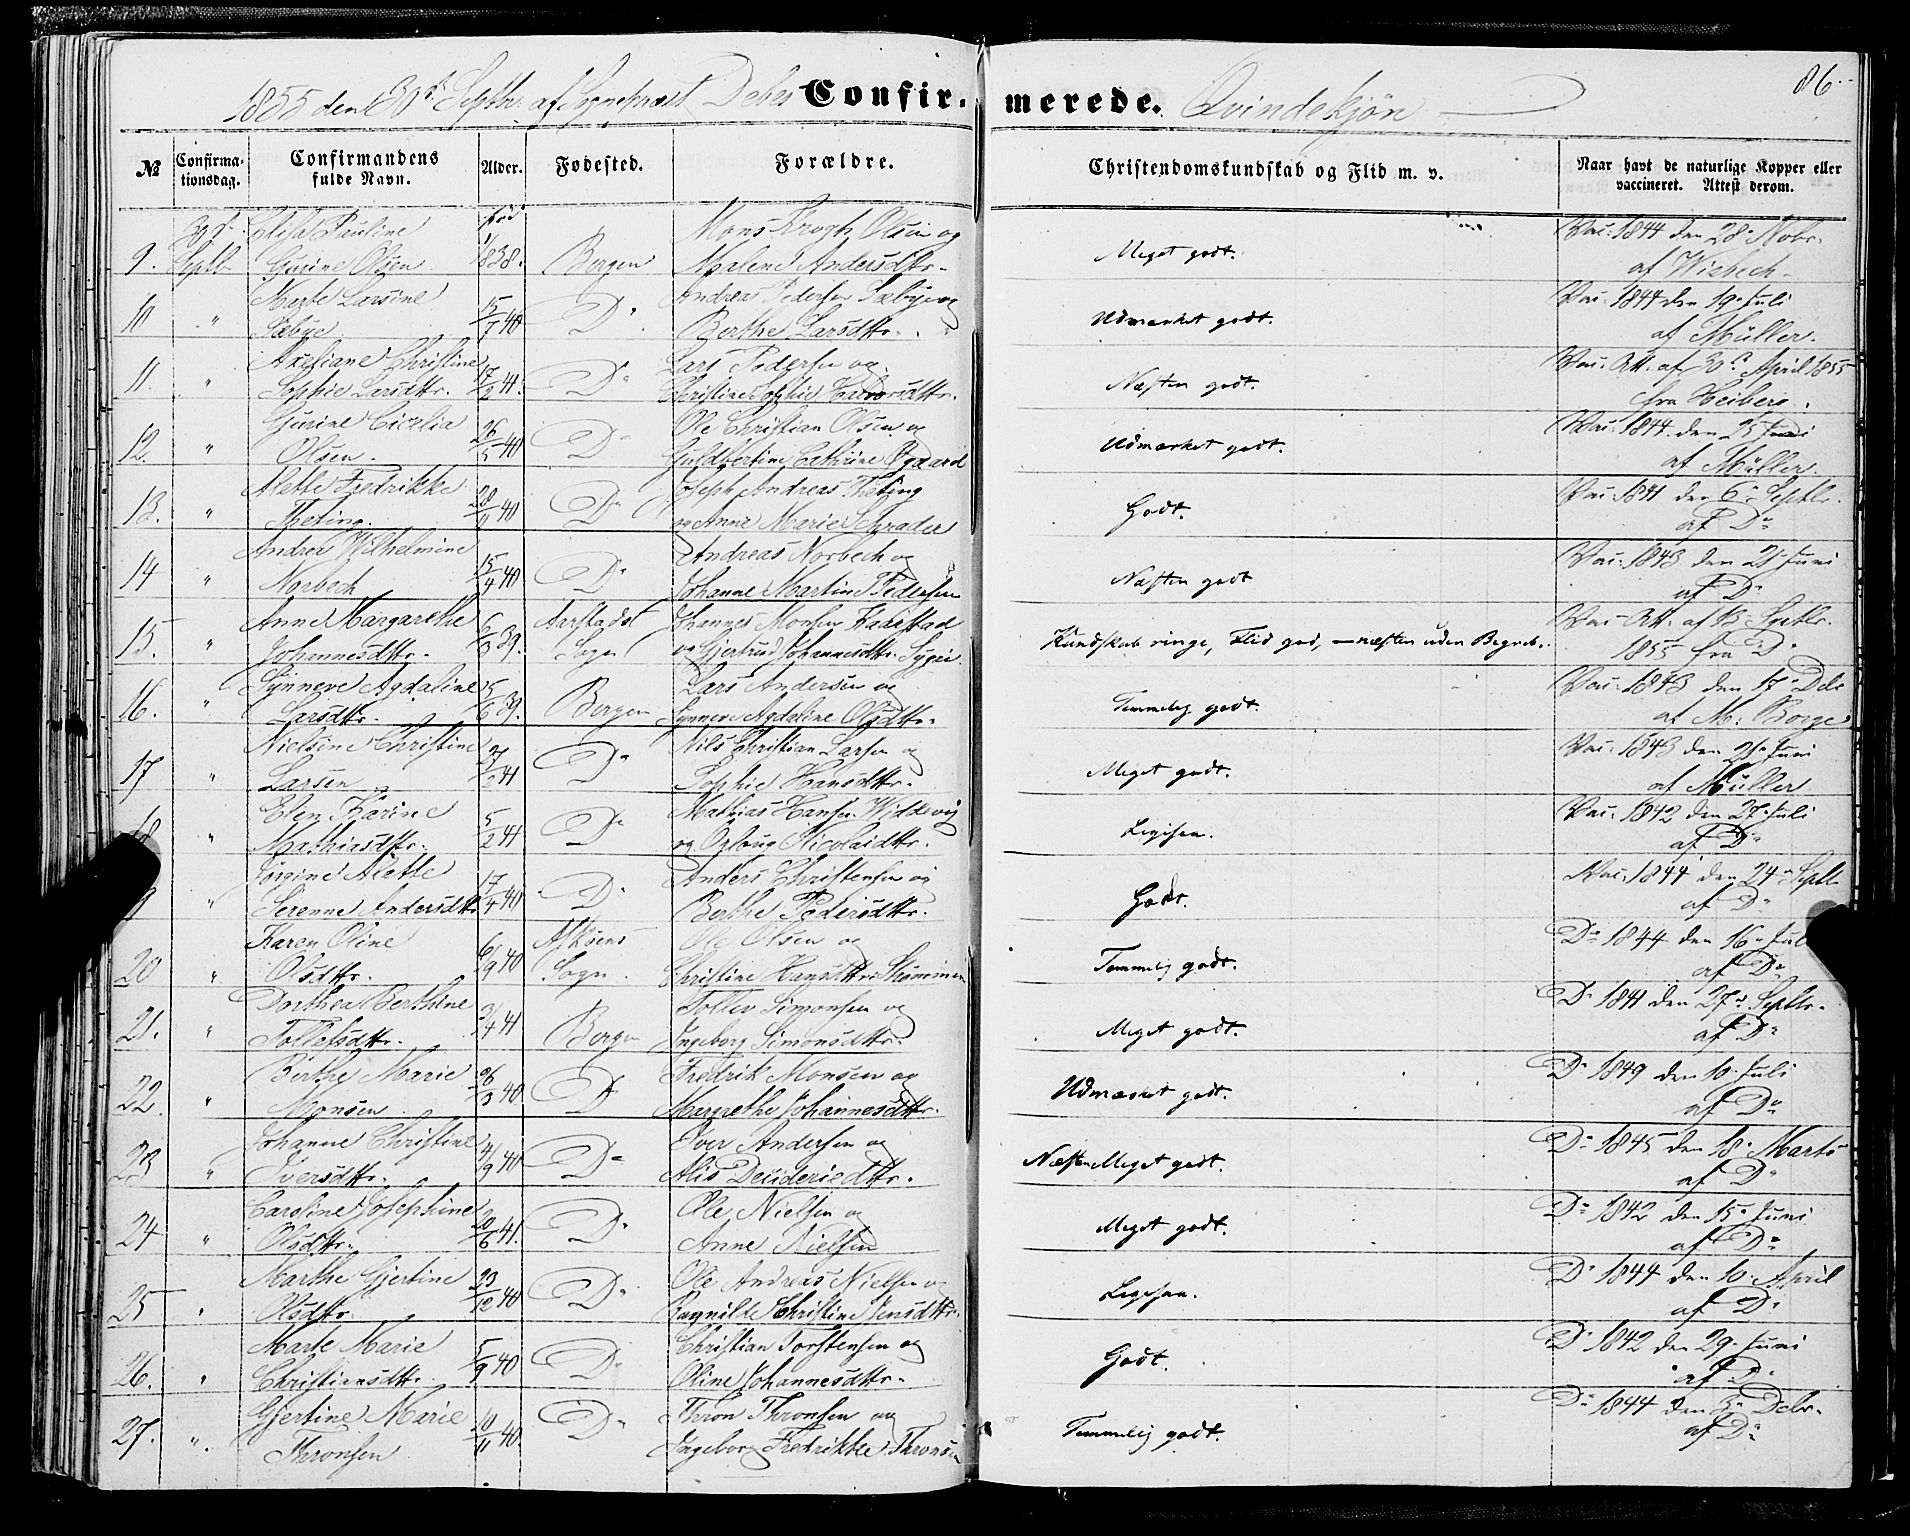 1855 den 30te Septbr. af Sognepræst Debes Confirmerede. Qvindekjøn 86.
№ Confirmationsdag. Confirmandens fulde Navn. Alder. Fødested. Forældre. Christendomskundskab og Flid m. v. Naar havt de naturlige Kopper eller vaccineret. Attest derom.
30te Elisa Pauline fød Mons Krogh Olsen og Vac: 1844 den 28de Nobr.
9. Septb Gurine Olsen 1/8 38. Bergen Malene Andersdttr. Meget godt. af Wisbech.
Marte Larsine Andreas Pedersen Sæbye og Vac: 1844 den 19de Juli
10 " Sæbye 15/7 40 Do Berthe Larsdttr. Udmærket godt. af Müller.
Axeliane Christine Lars Pedersen og Vac. Att. af 30te April 1855
11. " Sophie Larsdttr. 17/2 41. Do Christine Sophie Halvorsdttr. Næsten godt. fra Heiberg.
Gurine Cicelia Ole Christian Olsen og Vac: 1844 den 25 Juni
12. " Olsen. 26/5 40 Do Guldbertine Cathrine Øgaard Udmærket godt. af Müller.
Alette Fredrikke Joseph Andreas Theting Vac: 1841 den 6te Septbr.
13. " Theting. 20/11 40 Do og Anne Marie Schrader Godt. af Do
Andrea Wilhelmine Andreas Norbech og Vac: 1843 den 21 Juni
14 " Norbech 15/4 40 Do Johanne Martine Pedersen Næsten godt af Do
Anne Margarethe Aarstads Johannes Monsen Haarstad Vac. Att. af 13 Septbr.
15. " Johannesdttr. 6/3 39. Sogn og Gjertrud Johannesdttr. Kundskab ringe, Flid god, — næsten uden Begreb. 1855 fra Do
Synneve Agdaline Lars Andersen og Vac: 1843 den 17de Debr
16. " Larsdttr. 5/6 39. Bergen Synneve Agdaline Olsdttr. Temmelig godt. af M: Borge
Nielsine Christine Nils Christian Larsen og Vac: 1843 den 21de Juni
17 " Larsen 27/2 41 Do Sophie Hansdttr. Meget godt. af Müller
Elen Karine Mathias Hansen Widdevig Vac: 1842 den 27de Juli
18 " Mathiasdttr. 5/2 41 Do og Ogloug Nicolaidttr. Ligesaa. af Do
Jørgine Alette Anders Christensen og Vac: 1844 den 24de Septb
" Serenne Andersdttr 17/4 40 Do Berthe Pedersdttr. Godt. af Do
Karen Oline Askøens Ole Olsen og Do 1844 den 16de Jul
20 " Olsdttr. 6/9 40 Sogn. Christine Hansdttr. Temmelig godt. af Do
Dorthea Berthine Tollev Simonsen og Do 1841 den 27de Septbr.
21. " Tollefsdttr. 3/4 41 Bergen Ingeborg Simonsdttr. Meget godt. af Do
Birthe Marie Fredrik Monsen og Do 1849 den 10de Juli
22. " Monsen 26/3 40 Do Margrethe Johannesdttr. Udmærket godt. af Do
Johanne Christine Iver Andersen og Do 1845 den 18de Marts
23 " Iversdttr. 4/9 40 Do Alis Deideriedttr. Næsten Meget godt. af Do
Caroline Josephine Ole Nielsen og Do 1842 den 15de Juni
24 " Olsdttr. 20/6 41. Do Anne Nielsen Meget godt. af Do
Marthe Gjertine Ole Andreas Nielsen og Do 1844 den 10de April
25 " Olsdttr 23/12 40 Do Ragnilde Christine Jensdttr. Ligesaa. af Do
Marte Marie Christian Torstensen og Do 1842 den 29de Juni
26. " Christiansdttr. 5/9 40 Do Oline Johannesdttr. Godt. af Do
Gjertine Marie Thron Thronsen og Do 1844 den 5te Debr.
27. " Thronsen 10/11 40 Do Ingeborg Fredrikke Thronsen Temmelig godt. af Do